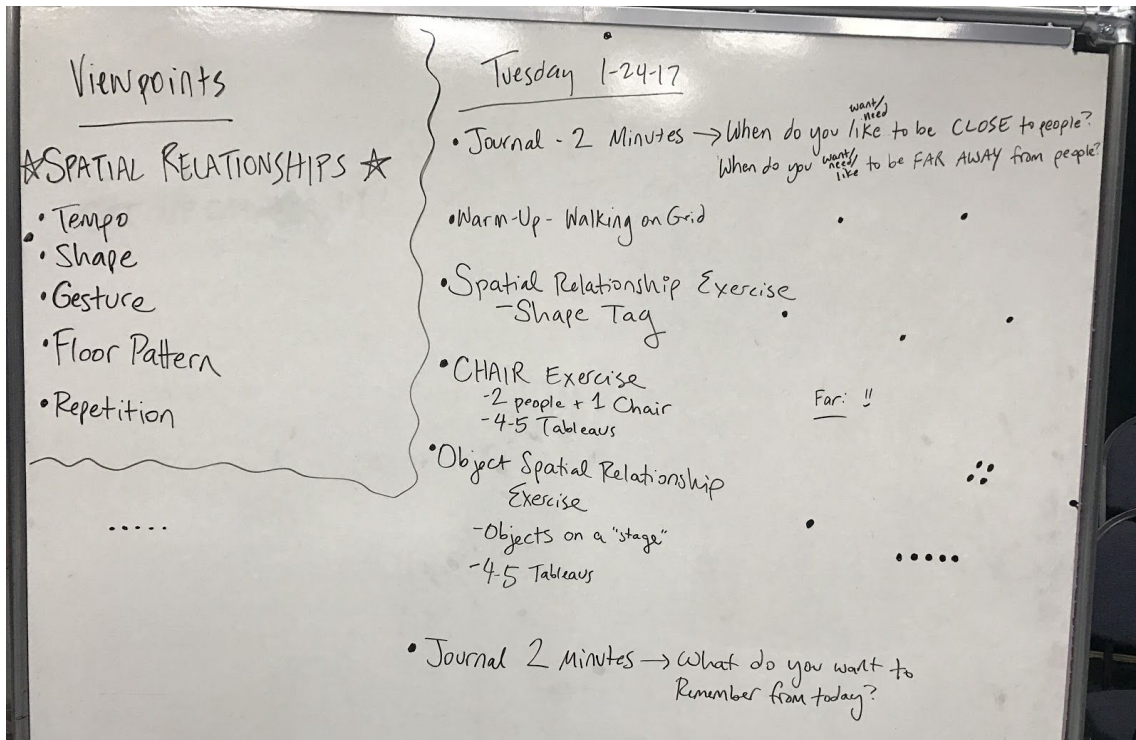 Viewpoints
☆SPATIAL RELATIONSHIPS☆
• Tempo
• Shape
• Gesture
• Floor Pattern
• Repetition
Tuesday 1-24-17
• Journal - 2 Minutes → When do you like want/need to be CLOSE to people?
When do you want/need/like to be FAR AWAY from people?
• Warm-Up - Walking on Grid
• Spatial Relationship Exercise
- Shape Tag
• CHAIR Exercise
- 2 people + 1 Chair
- 4-5 Tableaus
Far: !!
• Object Spatial Relationship
Exercise
- Objects on a "stage"
- 4-5 Tableaus
• Journal 2 Minutes → What do you want to
Remember from today?